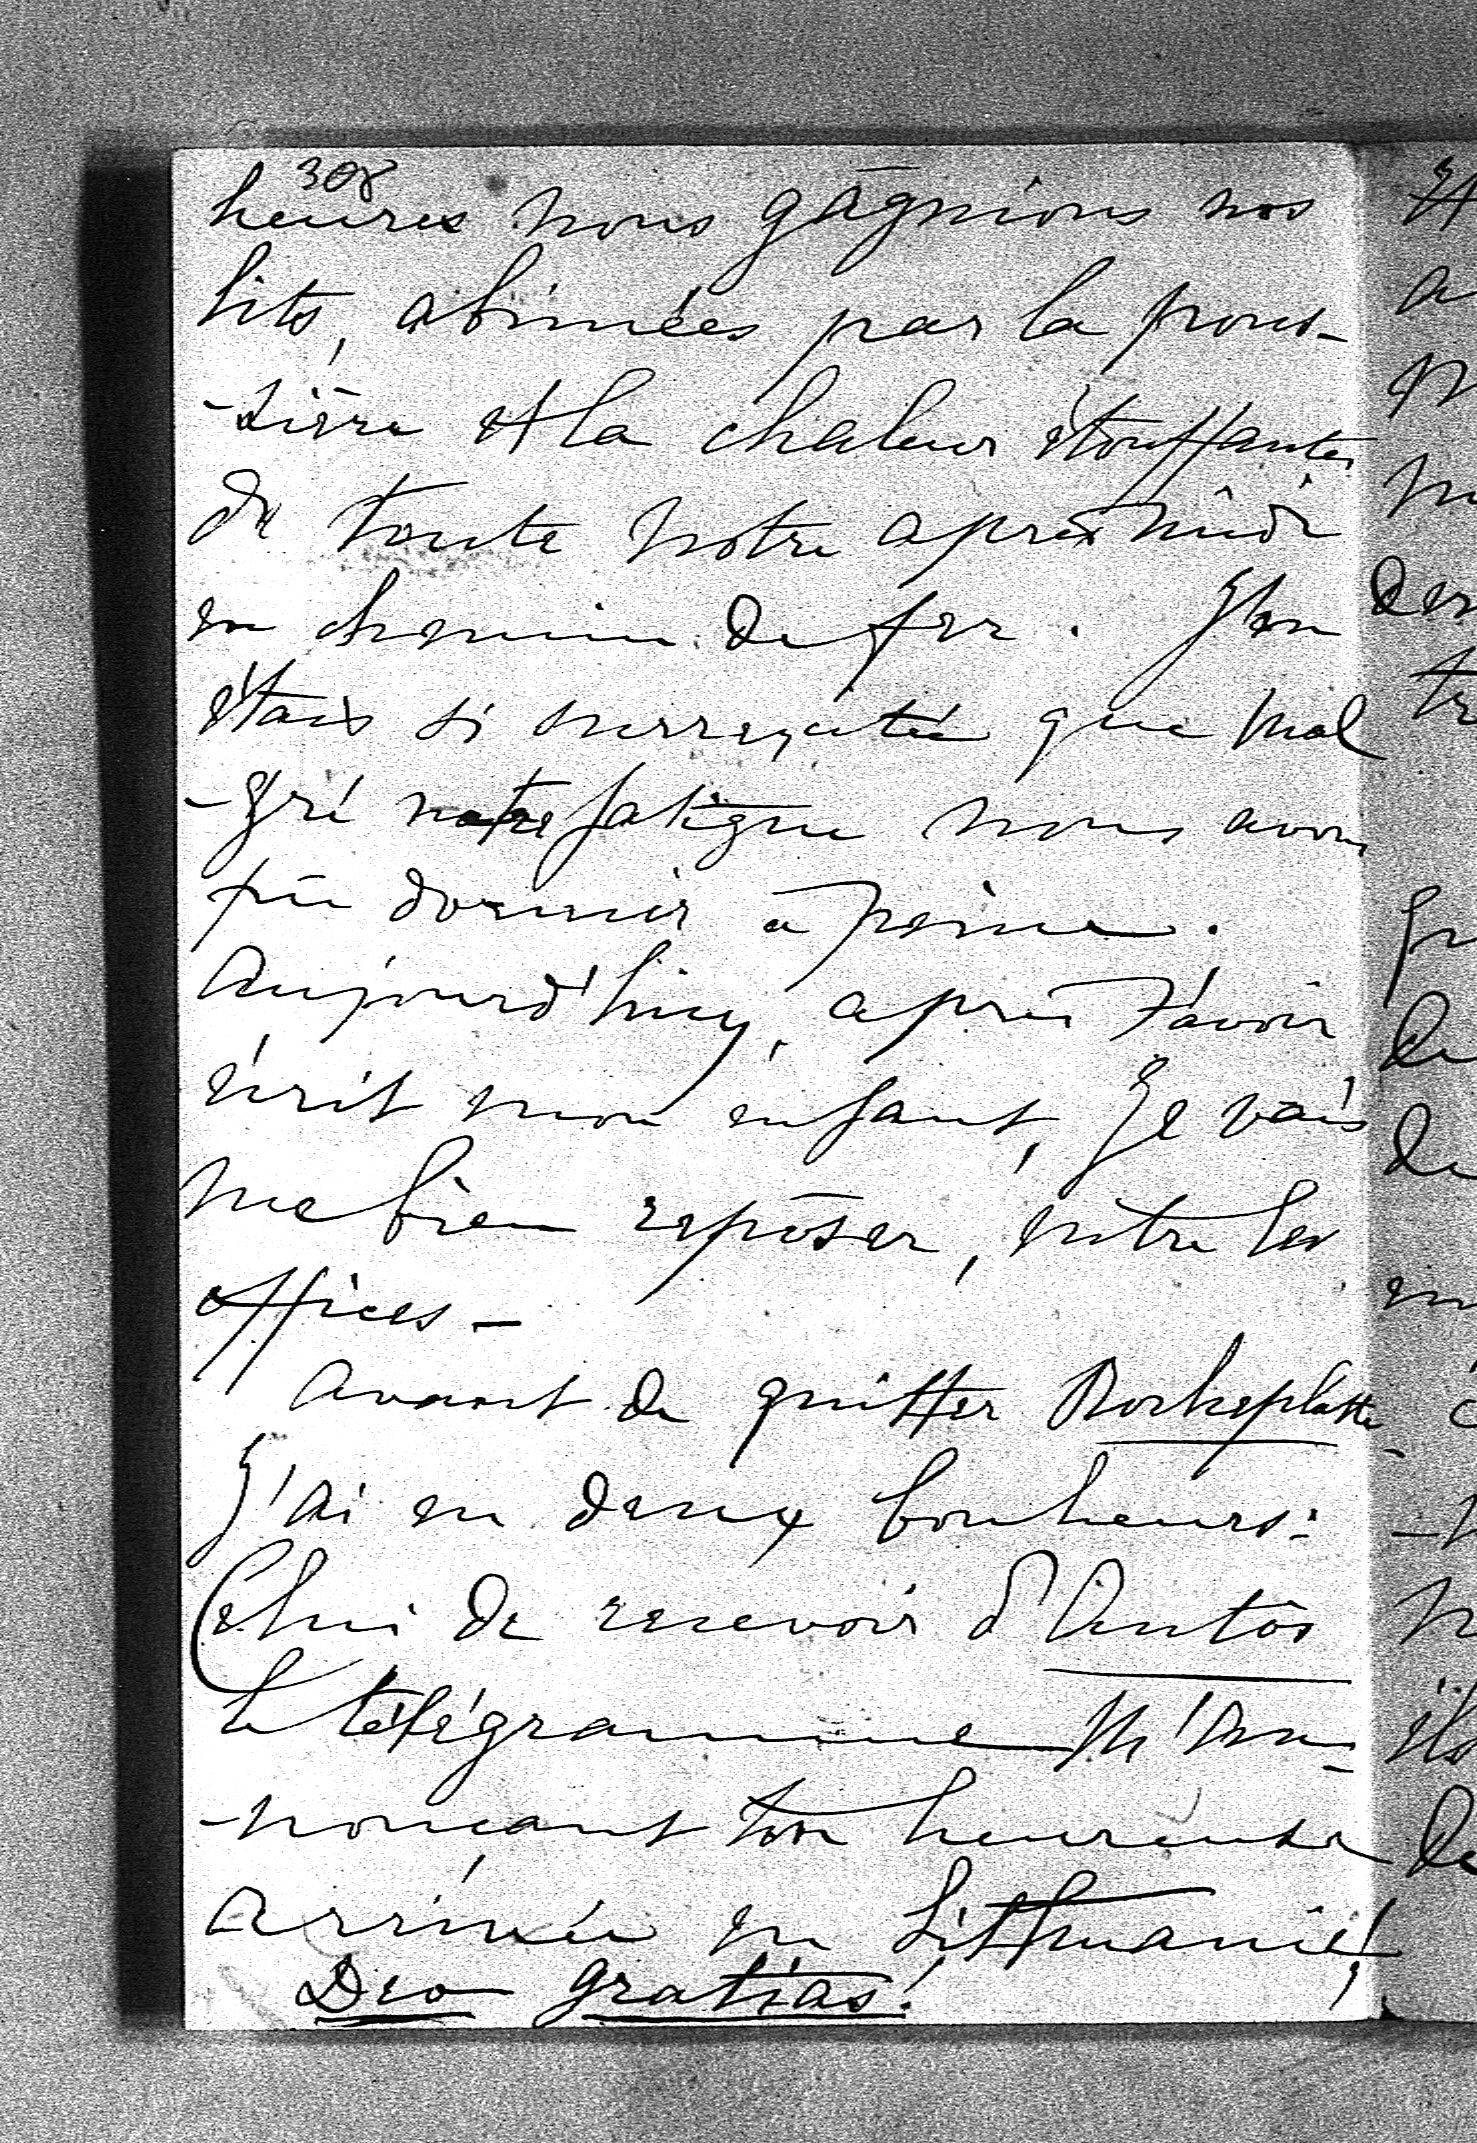 308
heures nous gāgnions nos
lits, abimées par la pous-
-sière et la chaleur étouffantes
de toute notre après midi
en chemin de fer. J'en
étais si surrexcitée que mal
-gré notre fatigue nous avons
pû dormir à peine.
Aujourd'huy, après t'avoir
écrit mon enfant, je vais
me bien repōser, entre les
offices -
Avant de quitter Rocheplatte
j'ai eu deux bonheurs:
Celui de recevoir d'Antōs
le télégramme m'an-
-nonçant ton heureuse
arrivée en Lithuanie!
Deo gratias!